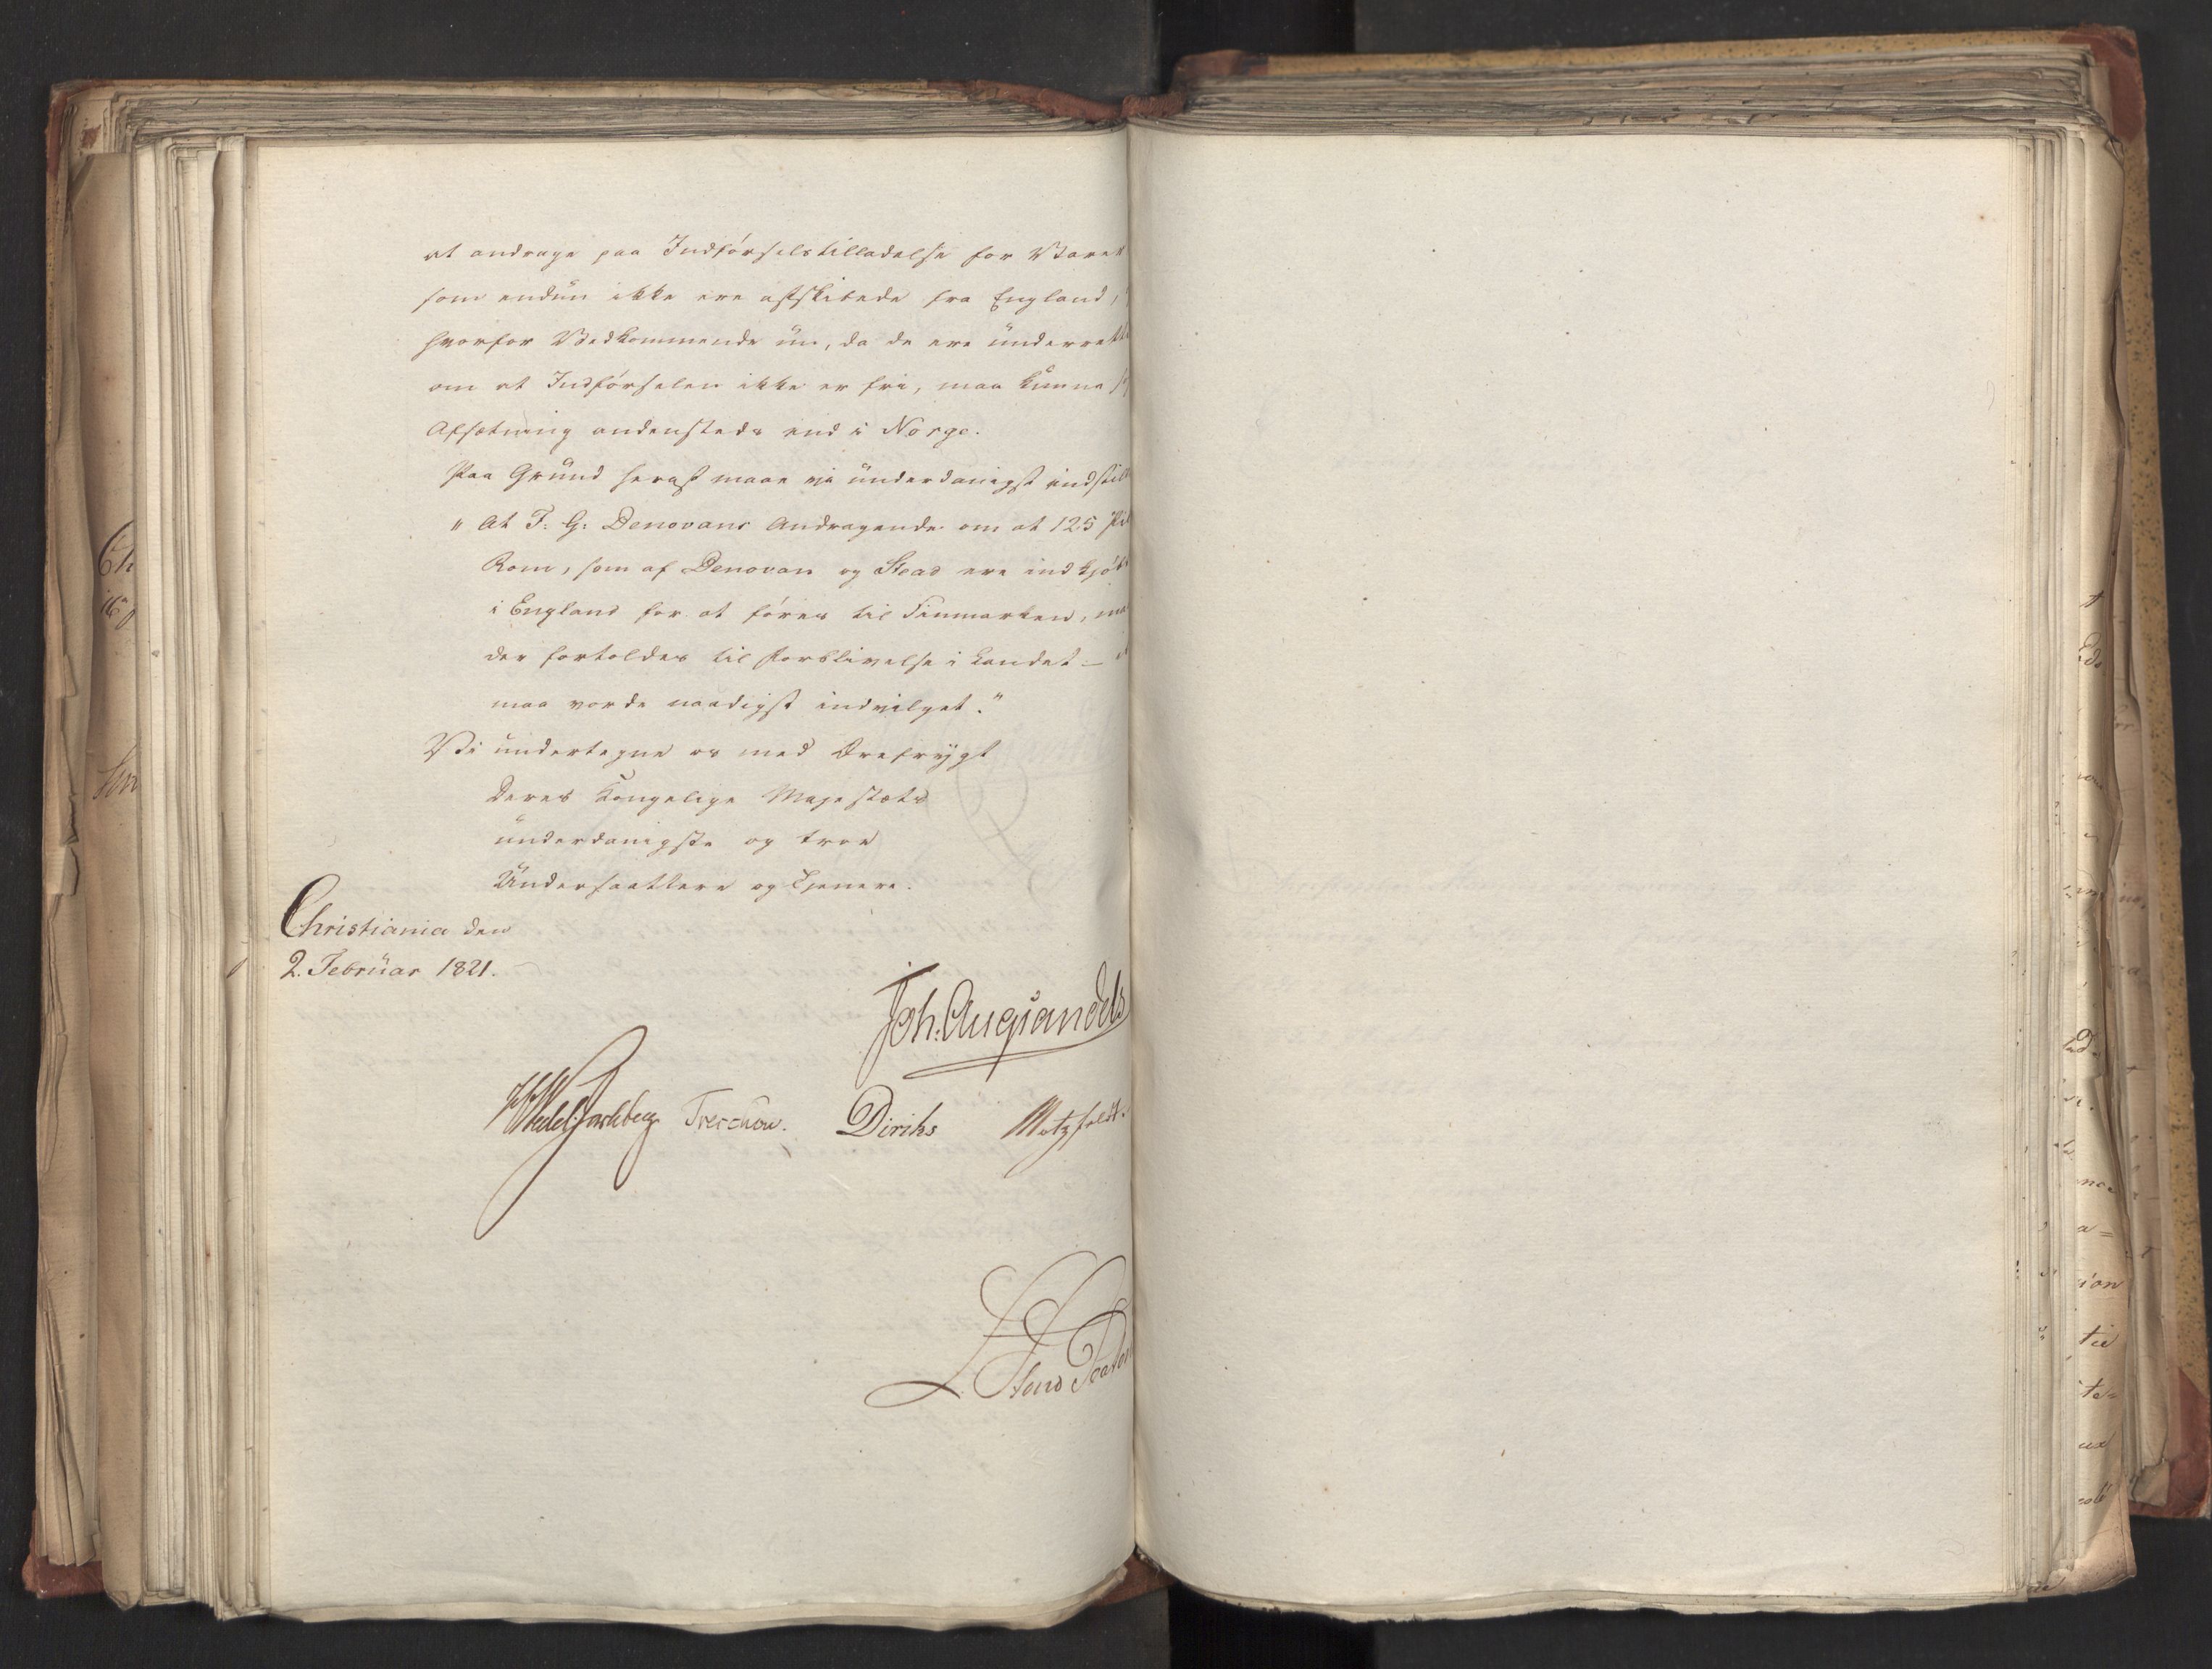 at andrage paa Indførselstilladelse for Varer
som endnu ikke ere afskibede fra England,
hvorfor Vedkommende nu, da de ere underrettede
om at Indførselen ikke er fri, maa kunne
Afsætning andensteds end i Norge.
Paa Grund heraf maae vi underdanigst indstille
"At F: G: Denovans Andragende om at 125
Rom, som af Denovan og Stead ere indkjøbte
i England for at føres til Finmarken, maa
der fortoldes til Forblivelse i Landet –
maa vorde naadigst indvilget."
Vi undertegne os med Ærefrygt
Deres Kongelige Majestæts
underdanigste og troe
Undersaatlere og Tjenere.
Christiania den
2. Februar 1821.
Joh. Aug. Sandels
HWedel Jarlsberg Treschow. Diriks Motzfeldt.